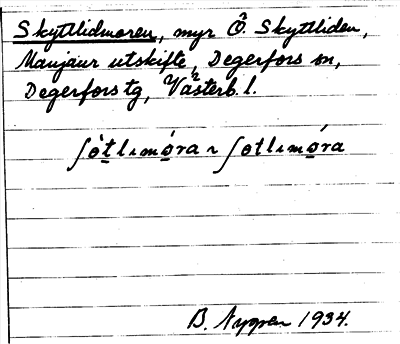 Skyttlidmoren, myr Ö. Skyttliden,
Manjaur utskifte, Degerfors sn,
Degerfors tg, Västerb. l.
ʃòt̲lımó̲ra ~ ʃotlımó̲ra
B. Nygren 1934.